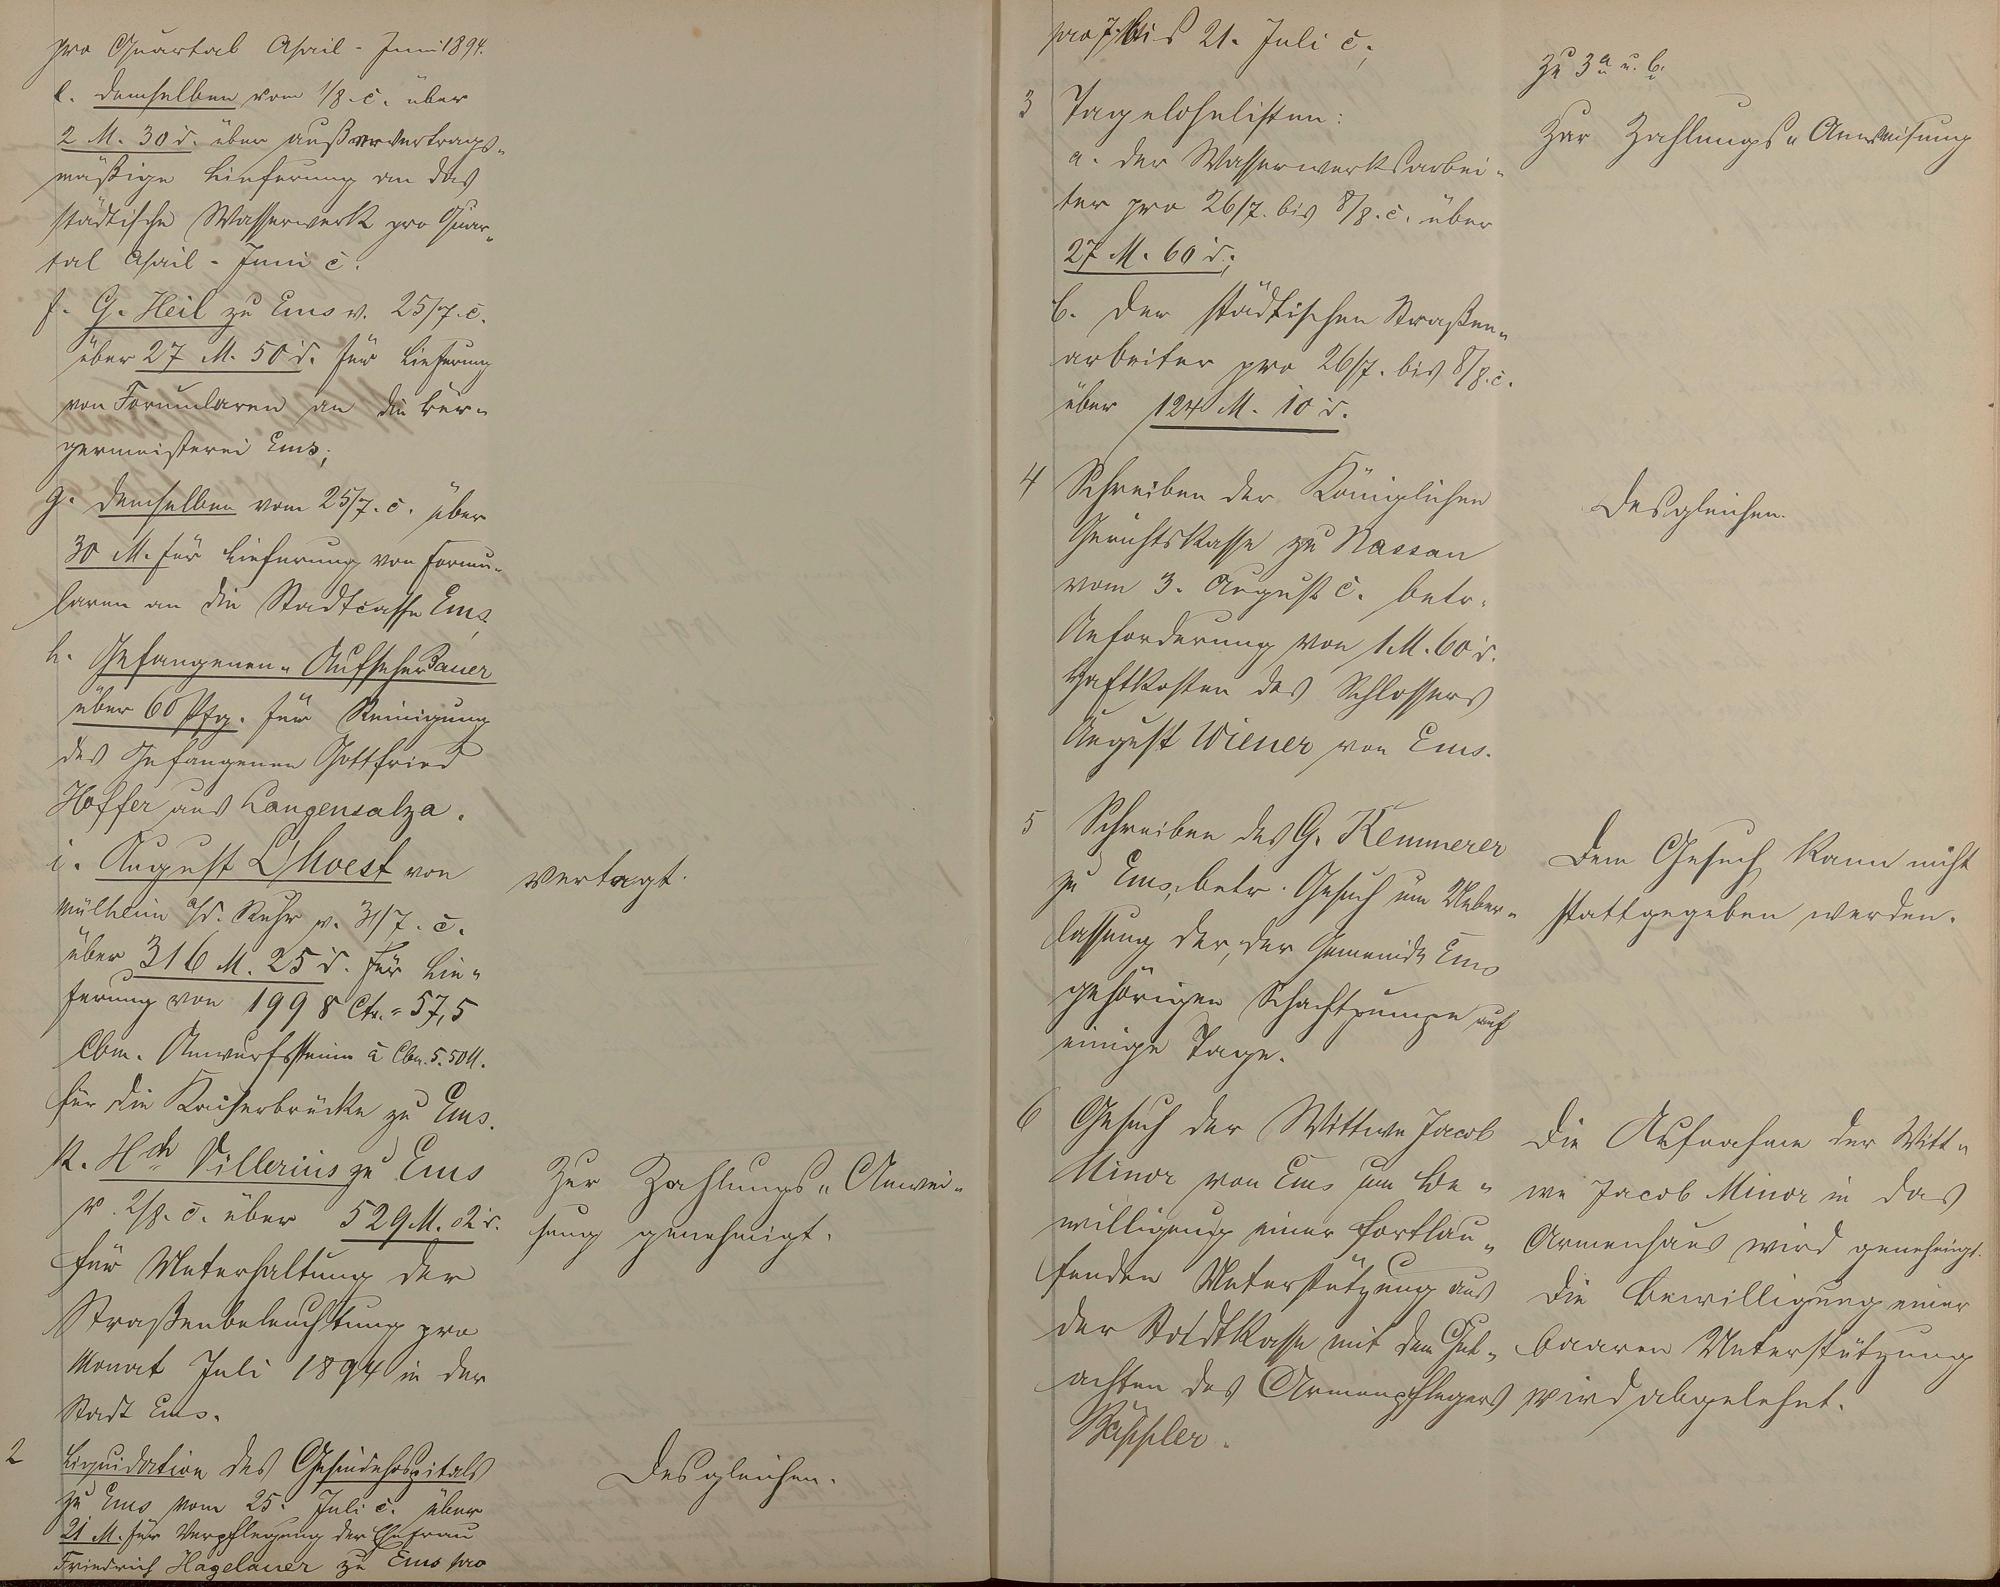 pro Quartal April - Juni 1894.
e. demselben vom 1/8. c. über
2 M. 30 d. über außervertrags-
mäßige Lieferung an das
städtische Wasserwerk pro Quar-
tal April - Juni c.
f. G. Heil zu Ems v. 25/7. c.
über 27 M. 50 d. für Lieferung
von Formularen an die Bür-
germeisterei Ems;
g. demselben vom 25/7. c. über
30 M. für Lieferung von Formu-
laren an die Stadtcasse Ems
h. Gefangenen-Aufseher Bauer
über 60 Pfg. für Reinigung
des Gefangenen Gottfried
Hoffer aus Langensalza.
i. August Lhoest von
Mülheim a/d. Ruhr v. 31/7. c.
über 316 M. 25 d. für Lie-
ferung von 1998 Ctr. = 57,5
Cbm. Anwurfssteine à Cbm. 5.50 M.
für die Kaiserbrücke zu Ems.
vertagt.
k. Hch Villerius zu Ems
v. 2/8. c. über 529 M. 02 d.
für Unterhaltung der
Straßenbeleuchtung pro
Monat Juli 1894 in der
Stadt Ems.
Zur Zahlungs-Anwei-
sung genehmigt.
2 Liquidation des Gesindehospitals
zu Ems vom 25. Juli c. über
21 M. für Verpflegung der Ehefrau
Friedrich Hagelauer zu Ems pro
Desgleichen.
pro 7. bis 21. Juli c.;
3 Tagelohnlisten:
a. der Wasserwerksarbei-
ter pro 26/7. bis 8/8. c. über
27 M. 60 d.;
b. der städtischen Straßen-
arbeiter pro 26/7. bis 8/8. c.
über 124 M. 10 d.
zu 3 a u. b.
Zur Zahlungs-Anweisung
4 Schreiben der Königlichen
Gerichtskasse zu Nassau
vom 3. August c. betr.
Anforderung von 1 M. 60 d.
Haftkosten des Schlossers
August Wiener von Ems.
Desgleichen.
5 Schreiben des G. Kemmerer
zu Ems, betr. Gesuch um Ueber-
lassung der, der Gemeinde Ems
gehörigen Schachtpumpe auf
einige Tage.
Dem Gesuch kann nicht
stattgegeben werden.
6 Gesuch der Wittwe Jacob
Minor von Ems um Be-
willigung einer fortlau-
fenden Unterstützung aus
der Stadtkasse mit dem Gut-
achten des Armenpflegers
Die Aufnahme der Witt-
we Jacob Minor in das
Armenhaus wird genehmigt.
Die Bewilligung einer
baaren Unterstützung
wird abgelehnt.